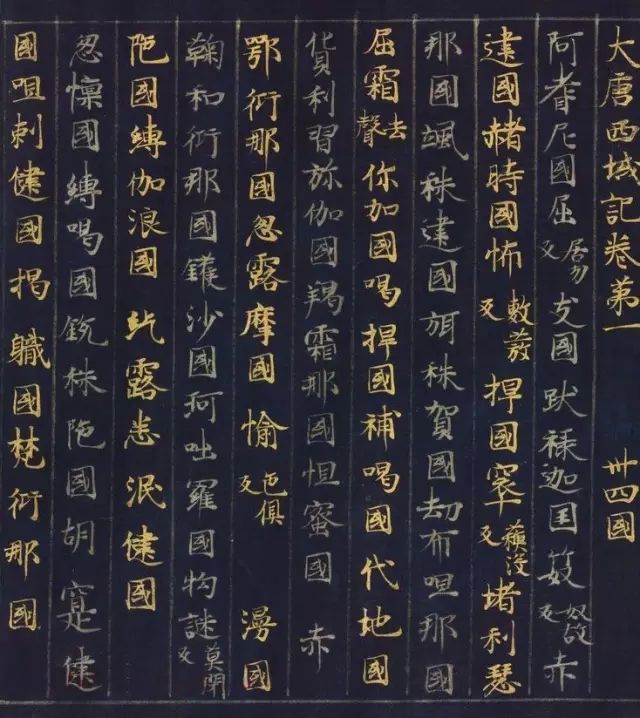 大唐西域記卷第一 卅四國
阿耆尼國 屈居勿反支國 跋祿迦国 笯奴故反赤
建國 赭時國 怖敷發反捍國 窣蘇沒反堵利瑟
那国 颯秣建國 弭秣賀國 劫布呾那國
屈霜去聲你加國 喝捍國 補喝國 代地國
貨利習弥伽國 羯霜那國 怛蜜國 赤
鄂衍那國 忽露摩國 愉色俱反漫國
鞠和衍那國 鑊沙國 珂咄羅國 拘謎莫閇反
陁國 縛伽浪國 訖露悉泯健國
忽懍國 縛喝國 銳秣陁國 胡寔健
國 呾剌健國 揭職國 梵衍那國